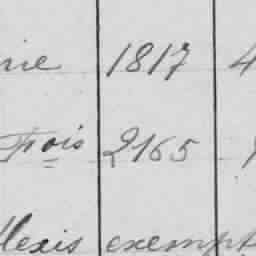 ne 1817 4
Fois 2165
lexis exempt